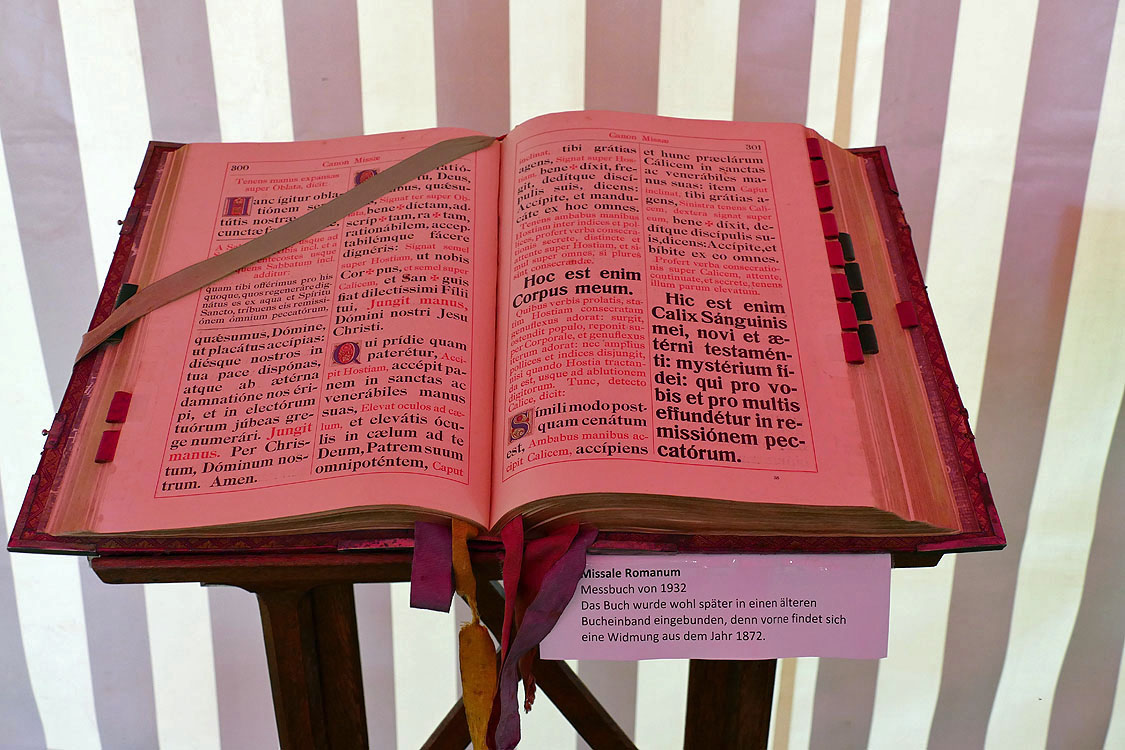 300
Canon Missæ
Tenens manus expansas
super Oblata, dicit:
Hanc igitur obla-
tiónem
tútis nostræ
cunctæ
usque ad
tibi offérimus pro his
quoque, quos regeneráre dig-
nátus es ex aqua et Spíritu
Sancto, tríbuens eis remissi-
ónem ómnium peccatórum,
quǽsumus, Dómine,
ut placátus accípias:
diésque nostros in
tua pace dispónas,
atque ab ætérna
damnatióne nos éri-
pi, et in electórum
tuórum júbeas gre-
ge numerári. Jungit
manus. Per Chris-
tum, Dóminum nos-
trum. Amen.
Deus,
quǽsu-
Signat ter super Ob-
bene✠díctam, ad
scrip✠tam, ra✠tam,
rationábilem, accep-
tabilémque fácere
dignéris: Signat semel
super Hostiam, ut nobis
Cor✠pus, et semel super
Calicem, et San✠guis
fiat dilectíssimi Fílii
tui, Jungit manus,
Dómini nostri Jesu
Christi.
Qui prídie quam
paterétur, Acci-
pit Hostiam, accépit pa-
nem in sanctas ac
venerábiles manus
suas, Elevat oculos ad cæ-
lum, et elevátis ócu-
lis in cælum ad te
Deum, Patrem suum
omnipoténtem, Caput
Canon Missæ
301
inclinat, tibi grátias
agens, Signat super Hos-
tiam, bene✠díxit, fre-
git, dedítque discí-
pulis suis, dicens:
Accípite, et mandu-
cáte ex hoc omnes.
Tenens ambabus manibus
Hostiam inter indices et pol-
lices, profert verba consecra-
tionis secrete, distincte et
attente super Hostiam, et si-
mul super omnes, si plures
sint consecrandæ.
Hoc est enim
Corpus meum.
Quibus verbis prolatis, sta-
tim Hostiam consecratam
genuflexus adorat: surgit,
ostendit populo, reponit su-
per Corporale, et genuflexus
iterum adorat: nec amplius
pollices et indices disjungit,
nisi quando Hostia tractan-
da est, usque ad ablutionem
digitorum. Tunc, detecto
Calice, dicit:
Símili modo post-
quam cenátum
est, Ambabus manibus ac-
cipit Calicem, accípiens
et hunc præclárum
Cálicem in sanctas
ac venerábiles ma-
nus suas: item Caput
inclinat, tibi grátias a-
gens, Sinistra tenens Cali-
cem, dextera signat super
eum, bene✠díxit, de-
dítque discípulis su-
is, dicens: Accípite, et
bíbite ex eo omnes.
Profert verba consecratio-
nis super Calicem, attente,
continuate, et secrete, tenens
illum parum elevatum.
Hic est enim
Calix Sánguinis
mei, novi et æ-
térni testamén-
ti: mystérium fí-
dei: qui pro vo-
bis et pro multis
effundétur in re-
missiónem pec-
catórum.
Missale Romanum
Messbuch von 1932
Das Buch wurde wohl später in einen älteren
Bucheinband eingebunden, denn vorne findet sich
eine Widmung aus dem Jahr 1872.